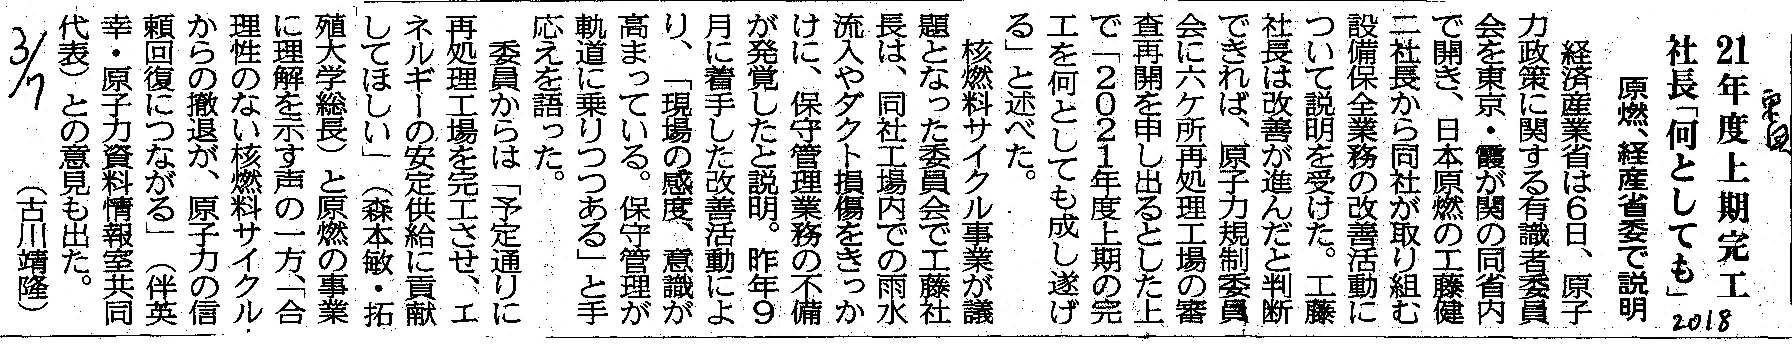 21年度上期完工
社長「何としても」
2018
原燃、経産省委で説明
経済産業省は6日、原子
力政策に関する有識者委員
会を東京・霞が関の同省内
で開き、日本原燃の工藤健
二社長から同社が取り組む
設備保全業務の改善活動に
ついて説明を受けた。工藤
社長は改善が進んだと判断
できれば、原子力規制委員
会に六ケ所再処理工場の審
査再開を申し出るとした上
で「2021年度上期の完
工を何としても成し遂げ
る」と述べた。
核燃料サイクル事業が議
題となった委員会で工藤社
長は、同社工場内での雨水
流入やダクト損傷をきっか
けに、保守管理業務の不備
が発覚したと説明。昨年9
月に着手した改善活動によ
り、「現場の感度、意識が
高まっている。保守管理が
軌道に乗りつつある」と手
応えを語った。
委員からは「予定通りに
再処理工場を完工させ、エ
ネルギーの安定供給に貢献
してほしい」（森本敏・拓
殖大学総長）と原燃の事業
に理解を示す声の一方、「合
理性のない核燃料サイクル
からの撤退が、原子力の信
頼回復につながる」（伴英
幸・原子力資料情報室共同
代表）との意見も出た。
（古川靖隆）
3/7